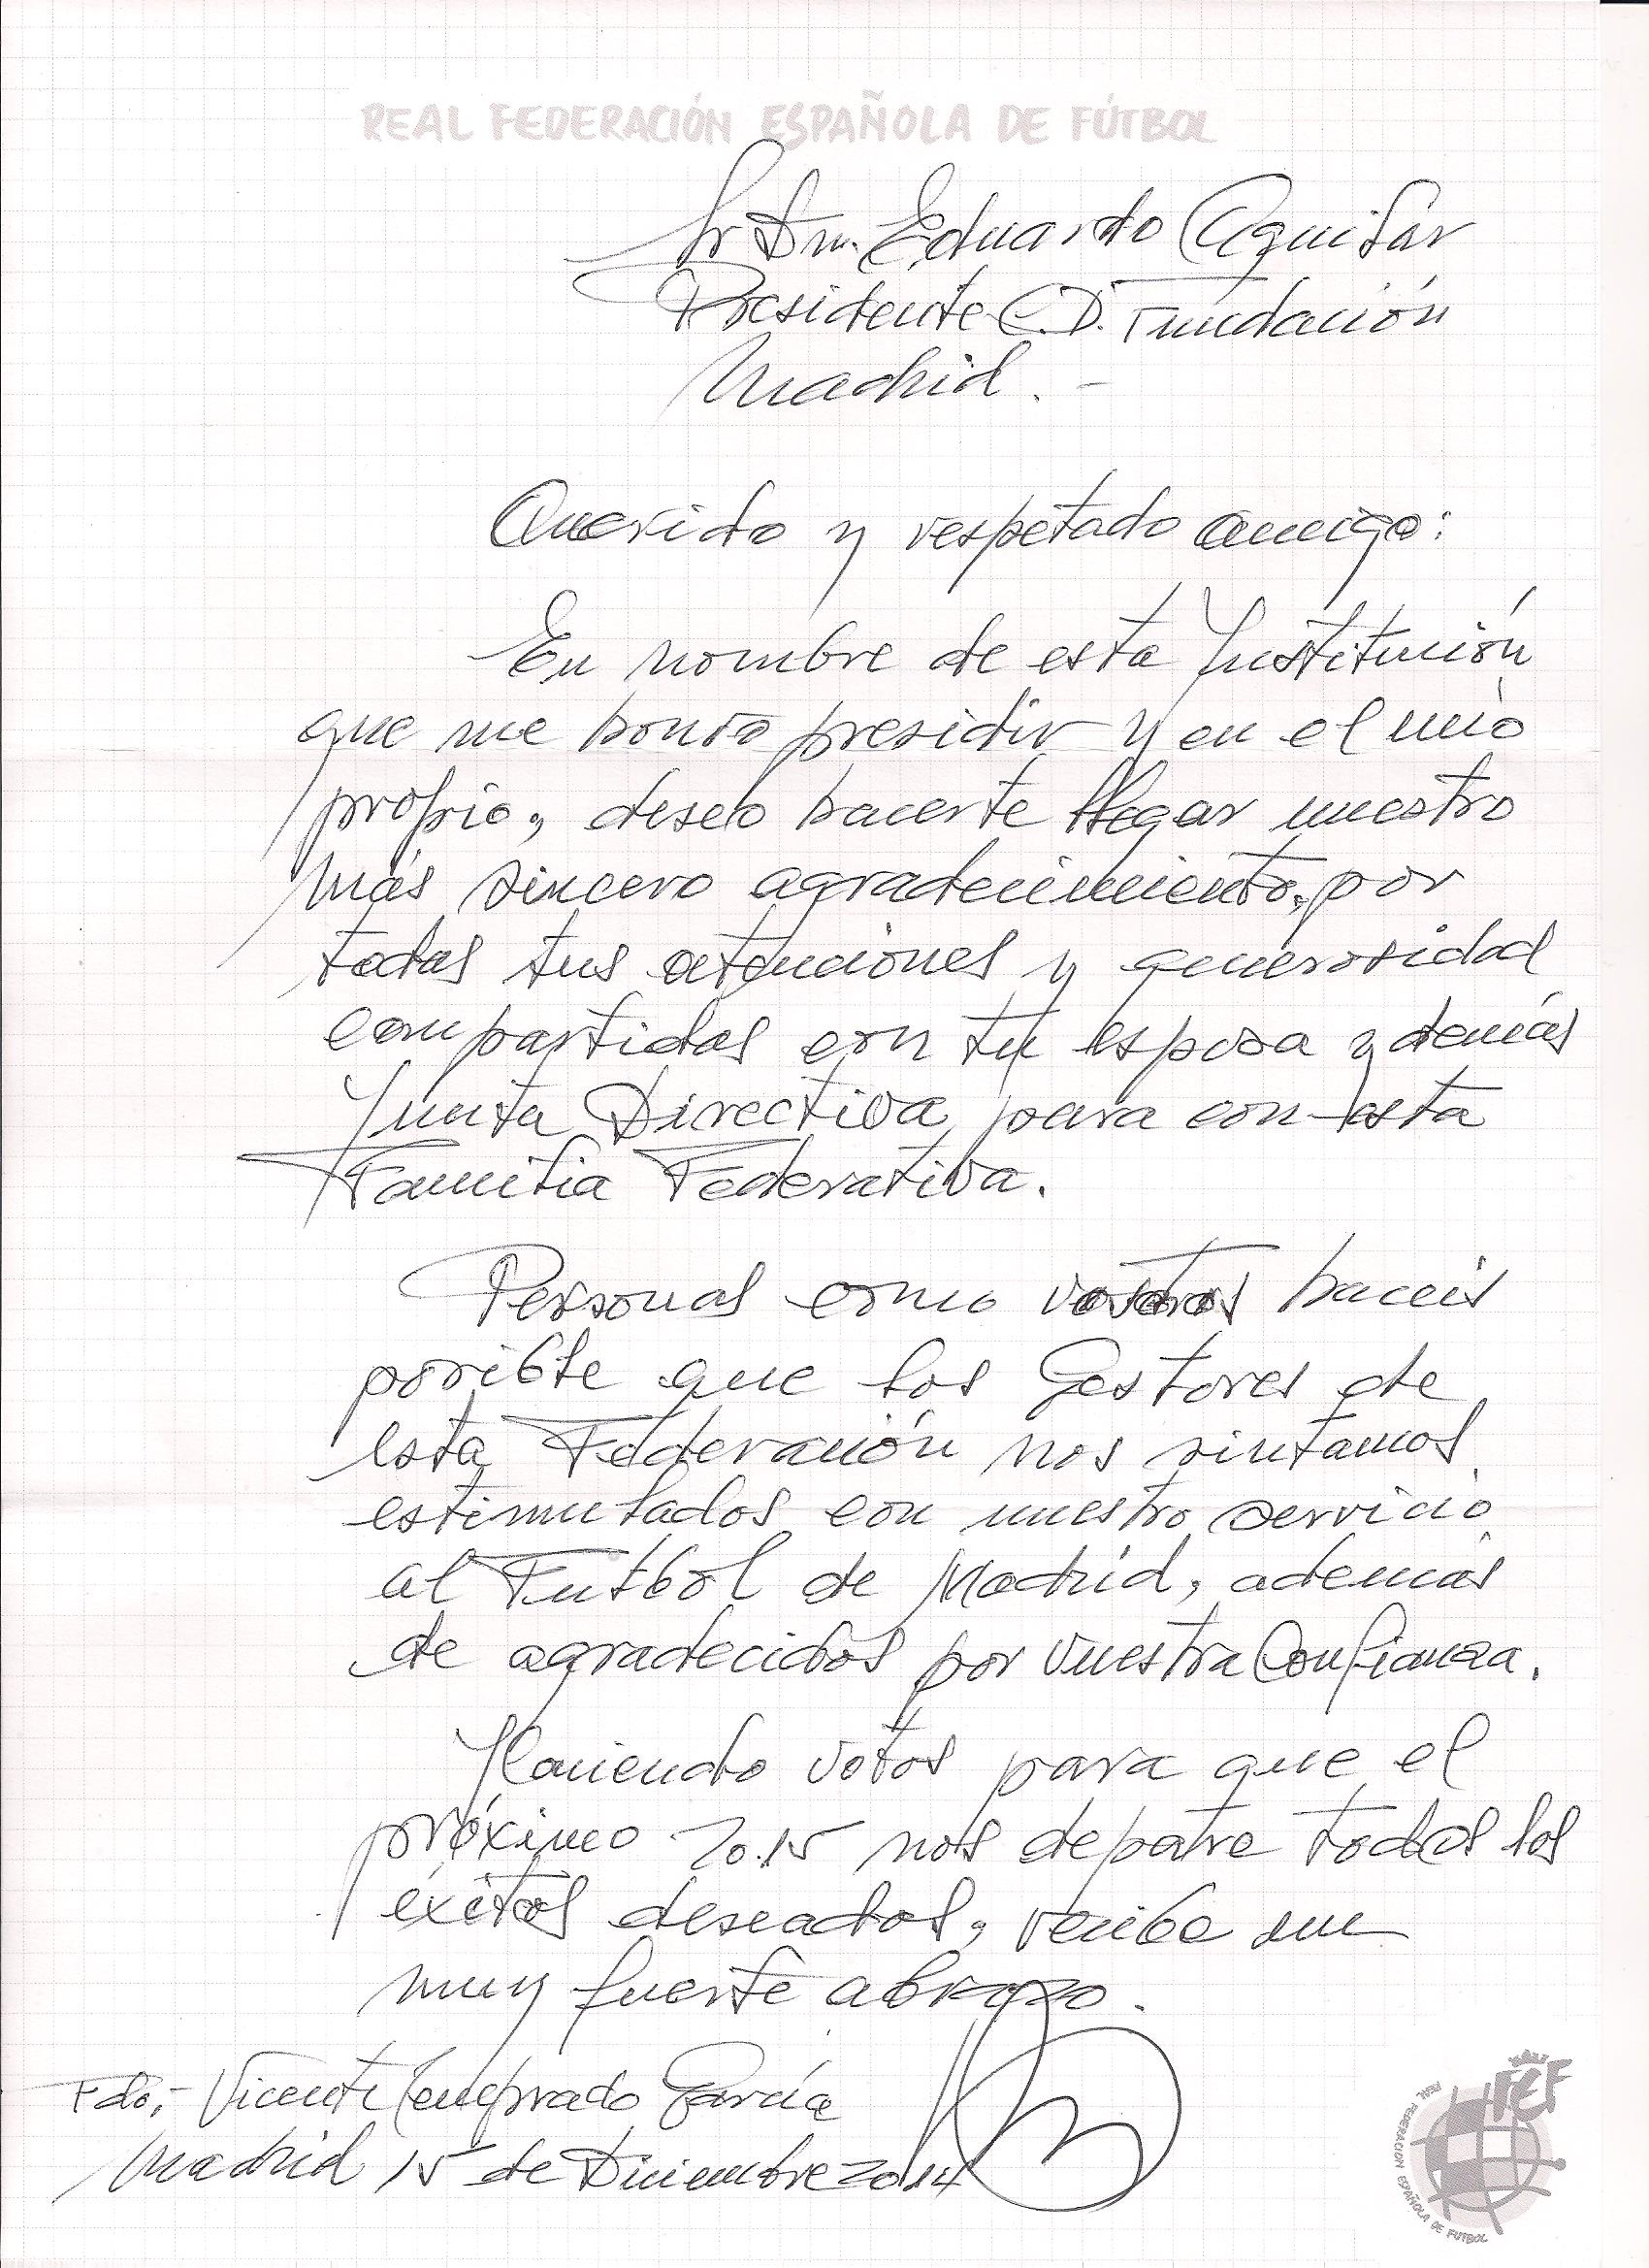 REAL FEDERACIÓN ESPAÑOLA DE FÚTBOL
Sr Dn. Eduardo Aguilar
Presidente C.D. Fundación
Madrid.-
Querido y respetado amigo:
En nombre de esta Institución
que me honro presidir y en el mío
propio, deseo hacerte llegar nuestro
más sincero agradecimiento, por
todas tus atenciones y generosidad
compartidas con tu esposa y demás
Junta Directiva, para con esta
Familia Federativa.
Personas como vosotros haceis
posible que los Gestores de
esta Federación nos sintamos
estimulados con nuestro servicio
al Futbol de Madrid, además
de agradecidos por vuestra Confianza.
Haciendo votos para que el
próximo 2015 nos depare todos los
éxitos deseados, recibe un
muy fuerte abrazo.
Fdo,- Vicente Temprado García
Madrid 15 de Diciembre 2014
RFEF
REAL FEDERACIÓN ESPAÑOLA DE FUTBOL